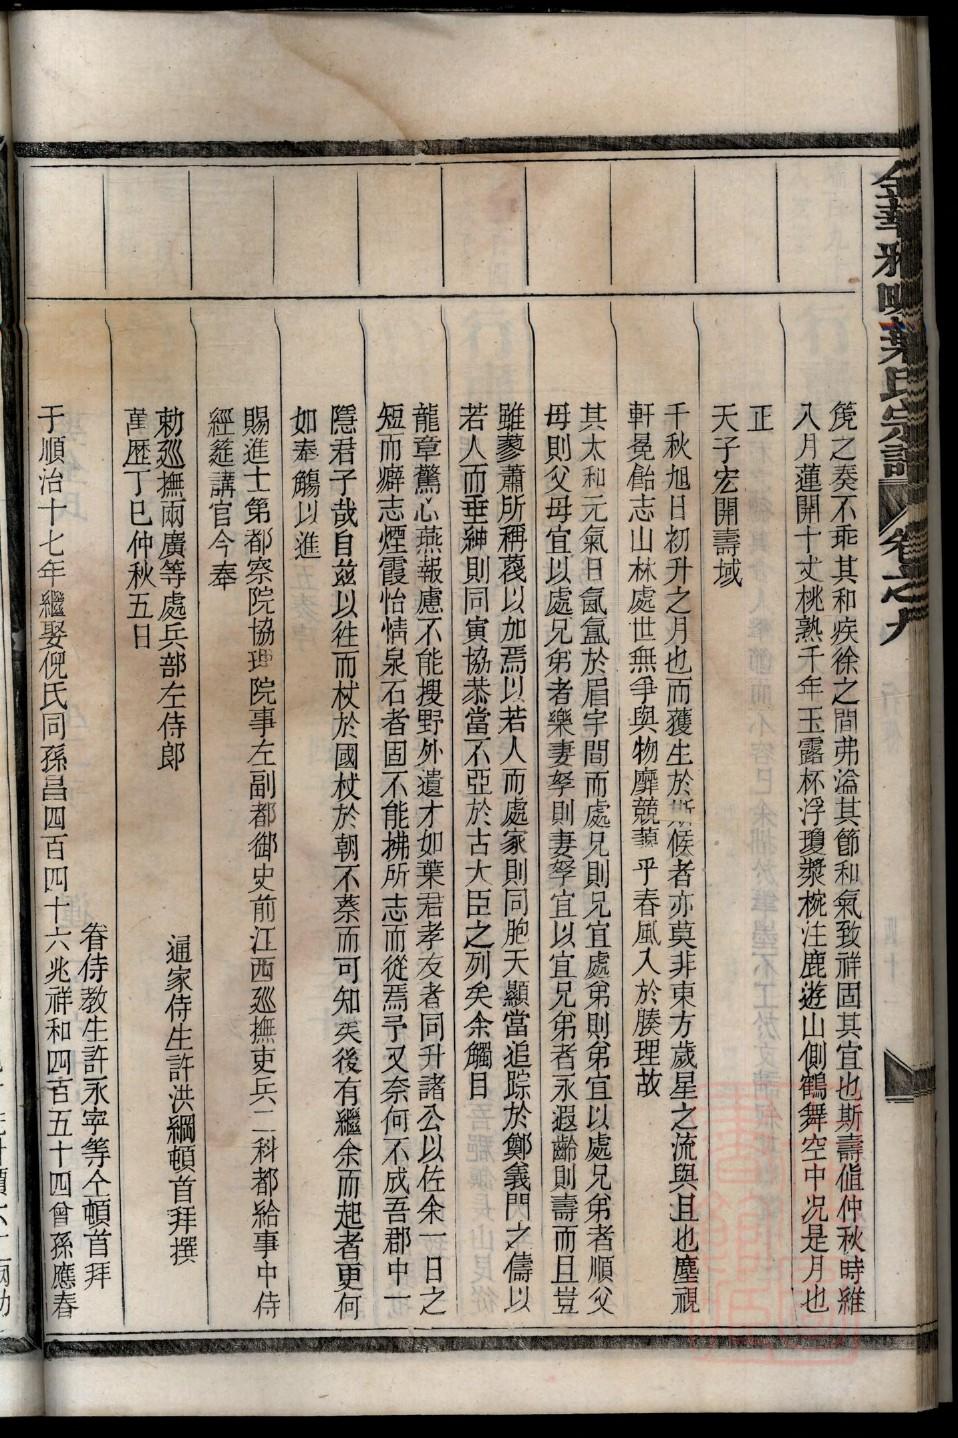 金華雅畈葉氏宗譜 卷之九
篪之奏不乖其和疾徐之間弗溢其節和氣致祥固其宜也斯壽值仲秋時維
入月蓮開十丈桃熟千年玉露杯浮瓊漿椀注鹿遊山側鶴舞空中况是月也
正
天子宏開壽域
千秋旭日初升之月也而獲生於斯候者亦莫非東方歲星之流與且也塵視
軒冕飴志山林處世無爭與物靡競藹乎春風入於腠理故
其太和元氣日氤氳於眉宇間而處兄則兄宜處弟則弟宜以處兄弟者順父
母則父母宜以處兄弟者樂妻孥則妻孥宜以宜兄弟者永遐齡則壽而且豈
雖蓼蕭所稱蔑以加焉以若人而處家則同胞天顯當追踪於鄭義門之儔以
若人而垂紳則同寅協恭當不亞於古大臣之列矣余觸目
龍章驚心燕報慮不能搜野外遺才如葉君孝友者同升諸公以佐余一日之
短而癖志煙霞怡情泉石者固不能拂所志而從焉予又奈何不成吾郡中一
隱君子哉自兹以往而杖於國杖於朝不蔡而可知矣後有繼余而起者更何
如奉觴以進
賜進士第都察院協理院事左副都御史前江西廵撫吏兵二科都給事中侍
經筵講官今奉
勅廵撫兩廣等處兵部左侍郎 通家侍生許洪綱頓首拜撰
萬歷丁巳仲秋五日
眷侍教生許永寧等仝頓首拜
于順治十七年繼娶倪氏同孫昌四百四十六兆祥和四百五十四曾孫應春